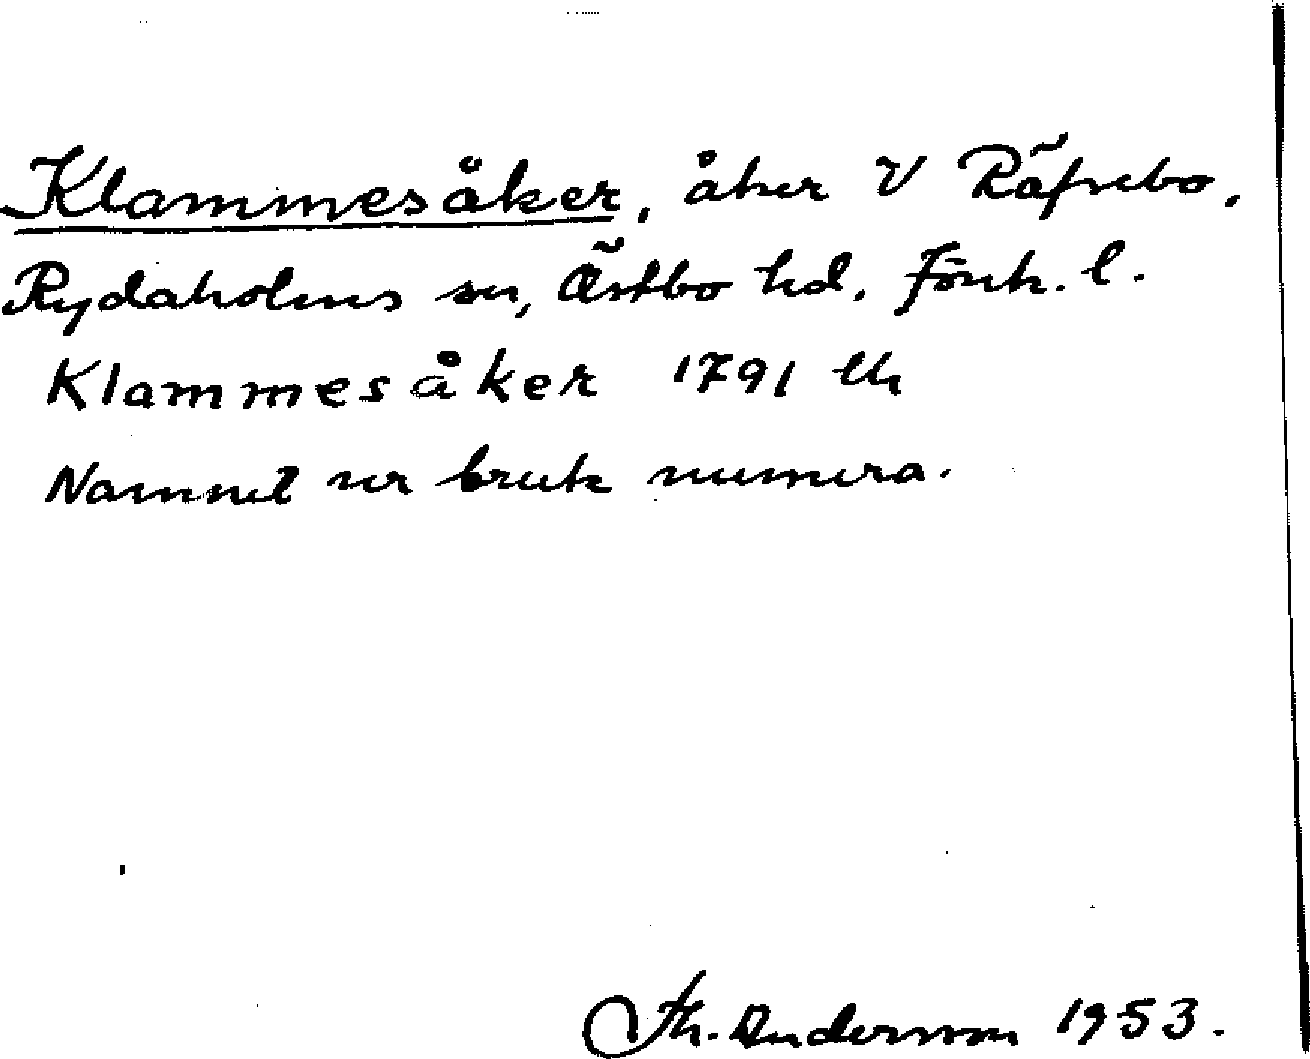 Klammesåker, åker V Räfsebo,
Rydaholms sn, Östbo hd, Jönk. l.
Klammesåker 1791 lh
Namnet ur bruk numera.
Th. Andersson 1953.